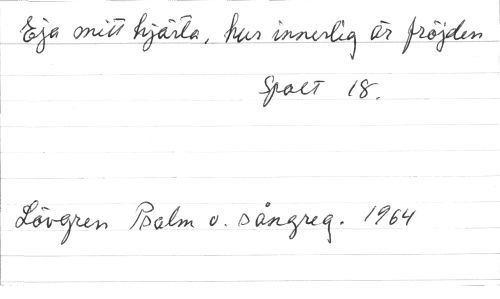 Eja mitt hjärta, hur innerlig är fröjden
Spalt 18.
Lövgren Psalm o. sångreg. 1964